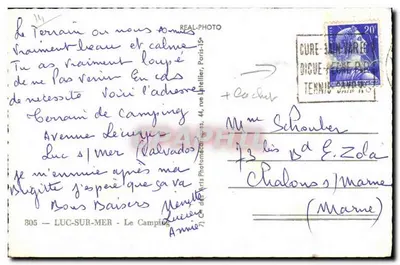 Le Terrain ou nous sommes
vraiment beau et calme
Tu as vraiment loupé
de ne Pas venir En cas
de nécessité Voici l'adresse
Terrain de Camping
Avenue
Luc s/Mer (Calvados)
je m'ennuie après ma
Brigitte j'espère que ça va
Bons Baisers
Lucien
Annie
805 — LUC-SUR-MER - Le Camping
REAL-PHOTO
44, rue Letellier, Paris-15e
20F
CURE
DIGUE
TENNIS
+ Cachet
Mme Schouber
73 bis Bd E. Zola
Chalons s/Marne
(Marne)